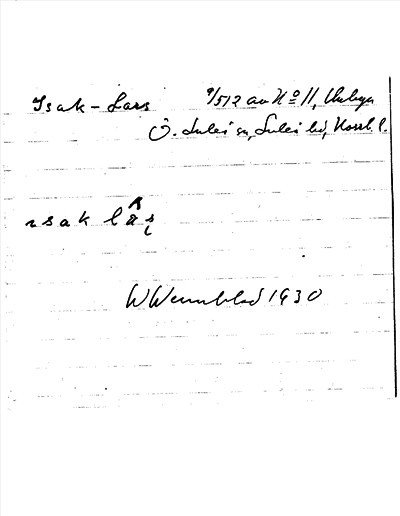 Isak-Lars 9/512 av No 11, Unbyn
Ö. Luleå sn, Luleå hd, Norrb. l.
ısak lâş
W Wennblad 1930